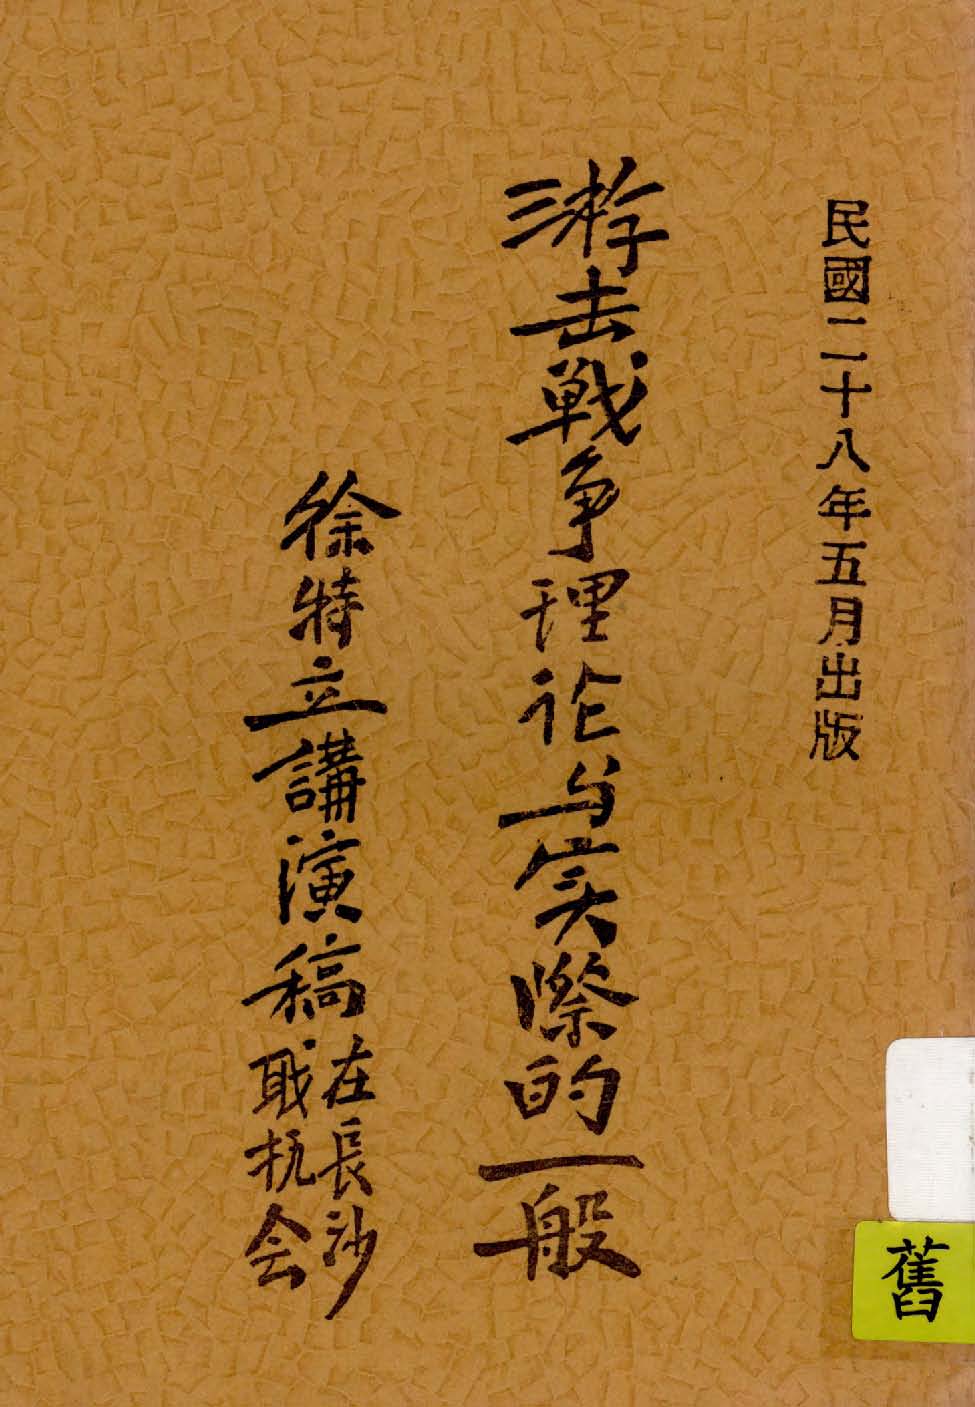 民國二十八年五月出版
游击戰争理论与实際的一般
徐特立講演稿
在長沙
职抗会
舊